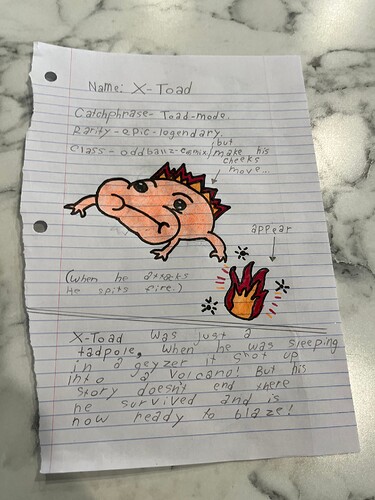 Name: X-Toad
Catchphrase- Toad-mode.
Rarity- epic-legendary.
Class- oddballz-comix/but make his
cheeks
move...
appear
(When he attacks
He spits fire.)
X-Toad was just a
tadpole, when he was sleeping
in a geyzer it shot up
into a volcano! But his
story doesn't end there
he survived and is
now ready to blaze!